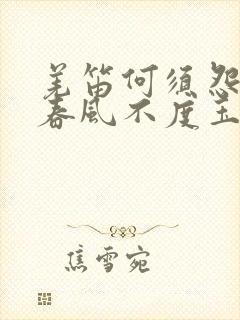 羌笛何须怨
春风不度玉
焦雪宛